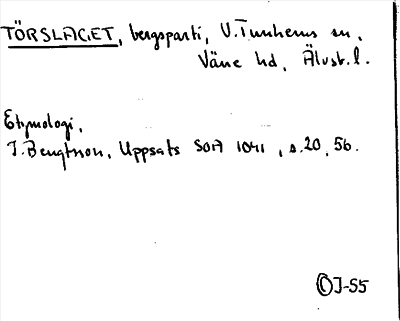 TÖRSLAGET, bergsparti, V. Tunhems sn,
Väne hd, Älvsb. l.
Etymologi,
J. Bengtsson, Uppsats SOA 1041, s. 20, 56.
OJ-55